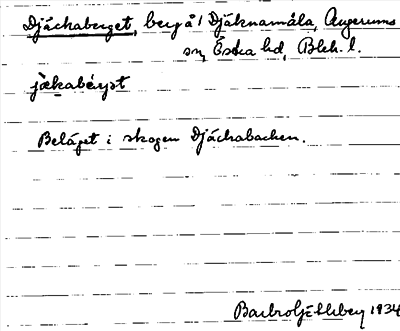 Djäckaberget, berg å/ Djäknamåla, Augerums
sn, Östra hd, Blek. l.
jækabéryət
Beläget i skogen Djäckabacken.
1934